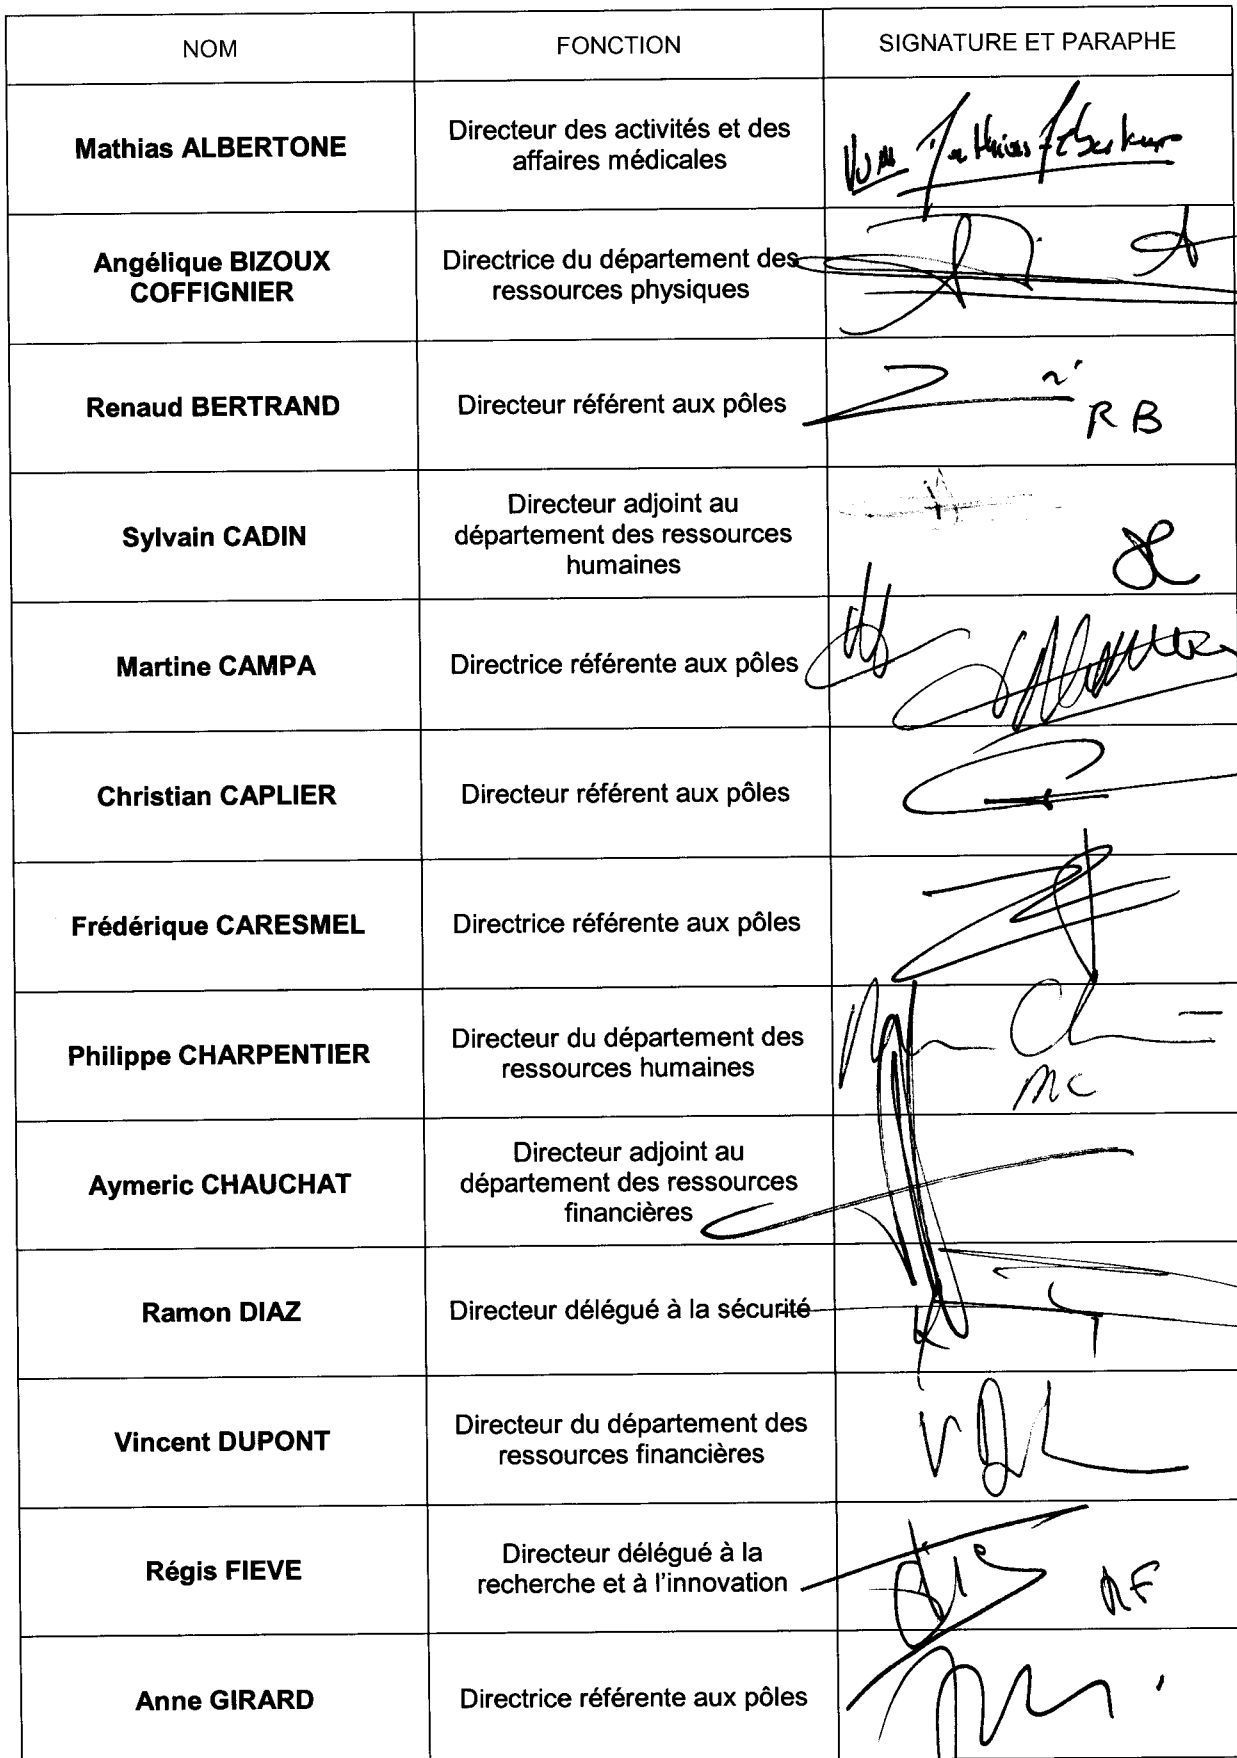 NOM FONCTION SIGNATURE ET PARAPHE
Mathias ALBERTONE
Directeur des activités et des
affaires médicales
Mathias Albertone
Angélique BIZOUX
COFFIGNIER
Directrice du département des
ressources physiques
Renaud BERTRAND
Directeur référent aux pôles
R B
Sylvain CADIN
Directeur adjoint au
département des ressources
humaines
Martine CAMPA
Directrice référente aux pôles
Christian CAPLIER
Directeur référent aux pôles
Frédérique CARESMEL
Directrice référente aux pôles
Philippe CHARPENTIER
Directeur du département des
ressources humaines
MC
Aymeric CHAUCHAT
Directeur adjoint au
département des ressources
financières
Ramon DIAZ
Directeur délégué à la sécurité
Vincent DUPONT
Directeur du département des
ressources financières
Régis FIEVE
Directeur délégué à la
recherche et à l'innovation
RF
Anne GIRARD
Directrice référente aux pôles